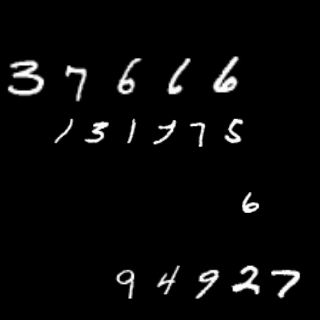 37666
131775
6
94927